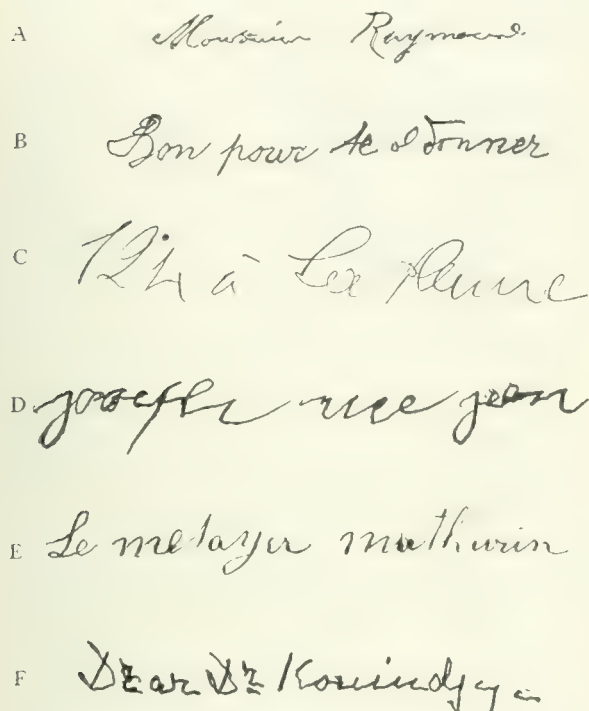 A Monsieur Raymond.
B Bon pour te donner
C 124 à La
D joseph rue jean
E Le metayer mathurin
F Dear Dr Kouindjy